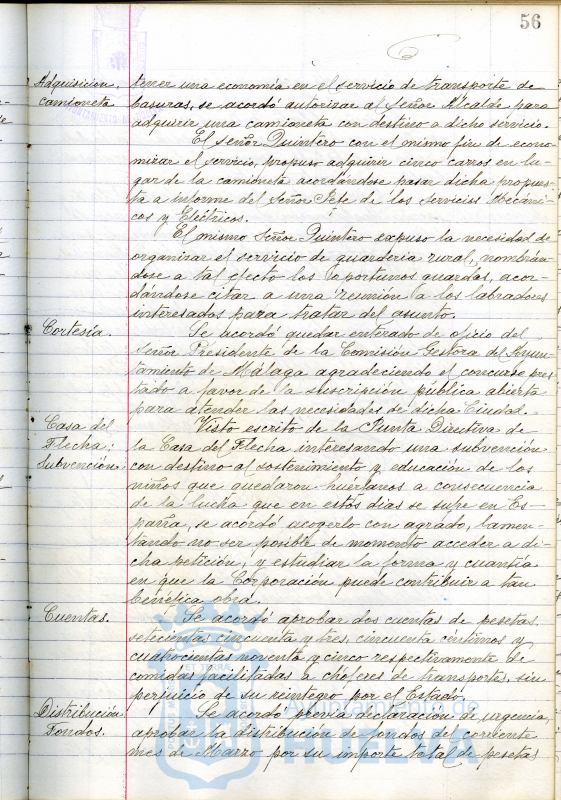 56
Adquisición camioneta
tener una economía en el servicio de transporte de
basuras, se acordó autorizar al Señor Alcalde para
adquirir una camioneta con destino a dicho servicio.
El señor Quintero con el mismo fin de econo-
mizar el servicio, propuso adquirir cinco carros en lu-
gar de la camioneta acordándose pasar dicha propues-
ta a informe del Señor Jefe de los servicios Mecáni-
cos y Eléctricos.
El mismo Señor Quintero expuso la necesidad de
organizar el servicio de guardería rural, nombrán-
dose a tal efecto los oportunos guardas, acor-
dándose citar a una reunión a los labradores
interesados para tratar del asunto.
Cortesía.
Se acordó quedar enterado de oficio del
Señor Presidente de la Comisión Gestora del Ayun-
tamiento de Málaga agradeciendo el concurso pres-
tado a favor de la suscripción pública abierta
para atender las necesidades de dicha Ciudad.
Casa del
Flecha:
Subvención.
Visto escrito de la Junta Directiva de
la Casa del Flecha interesando una subvención
con destino al sostenimiento y educación de los
niños que quedaron huérfanos a consecuencia
de la lucha que en estos dias se sufre en Es-
paña, se acordó acogerlo con agrado, lamen-
tando no ser posible de momento acceder a di-
cha petición, y estudiar la forma y cuantía
en que la Corporación puede contribuir a tan
benéfica obra.
Cuentas.
Se acordó aprobar dos cuentas de pesetas
setecientas cincuenta y tres, cincuenta céntimos y
cuatrocientas noventa y cinco respectivamente de
comidas facilitadas a choferes de transportes, sin
perjuicio de su reintegro por el Estado.
Distribución
Fondos.
Se acordó previa declaración de urgencia,
aprobar la distribución de fondos del corriente
mes de Marzo por su importe total de pesetas
Ayuntamiento de
HUELVA